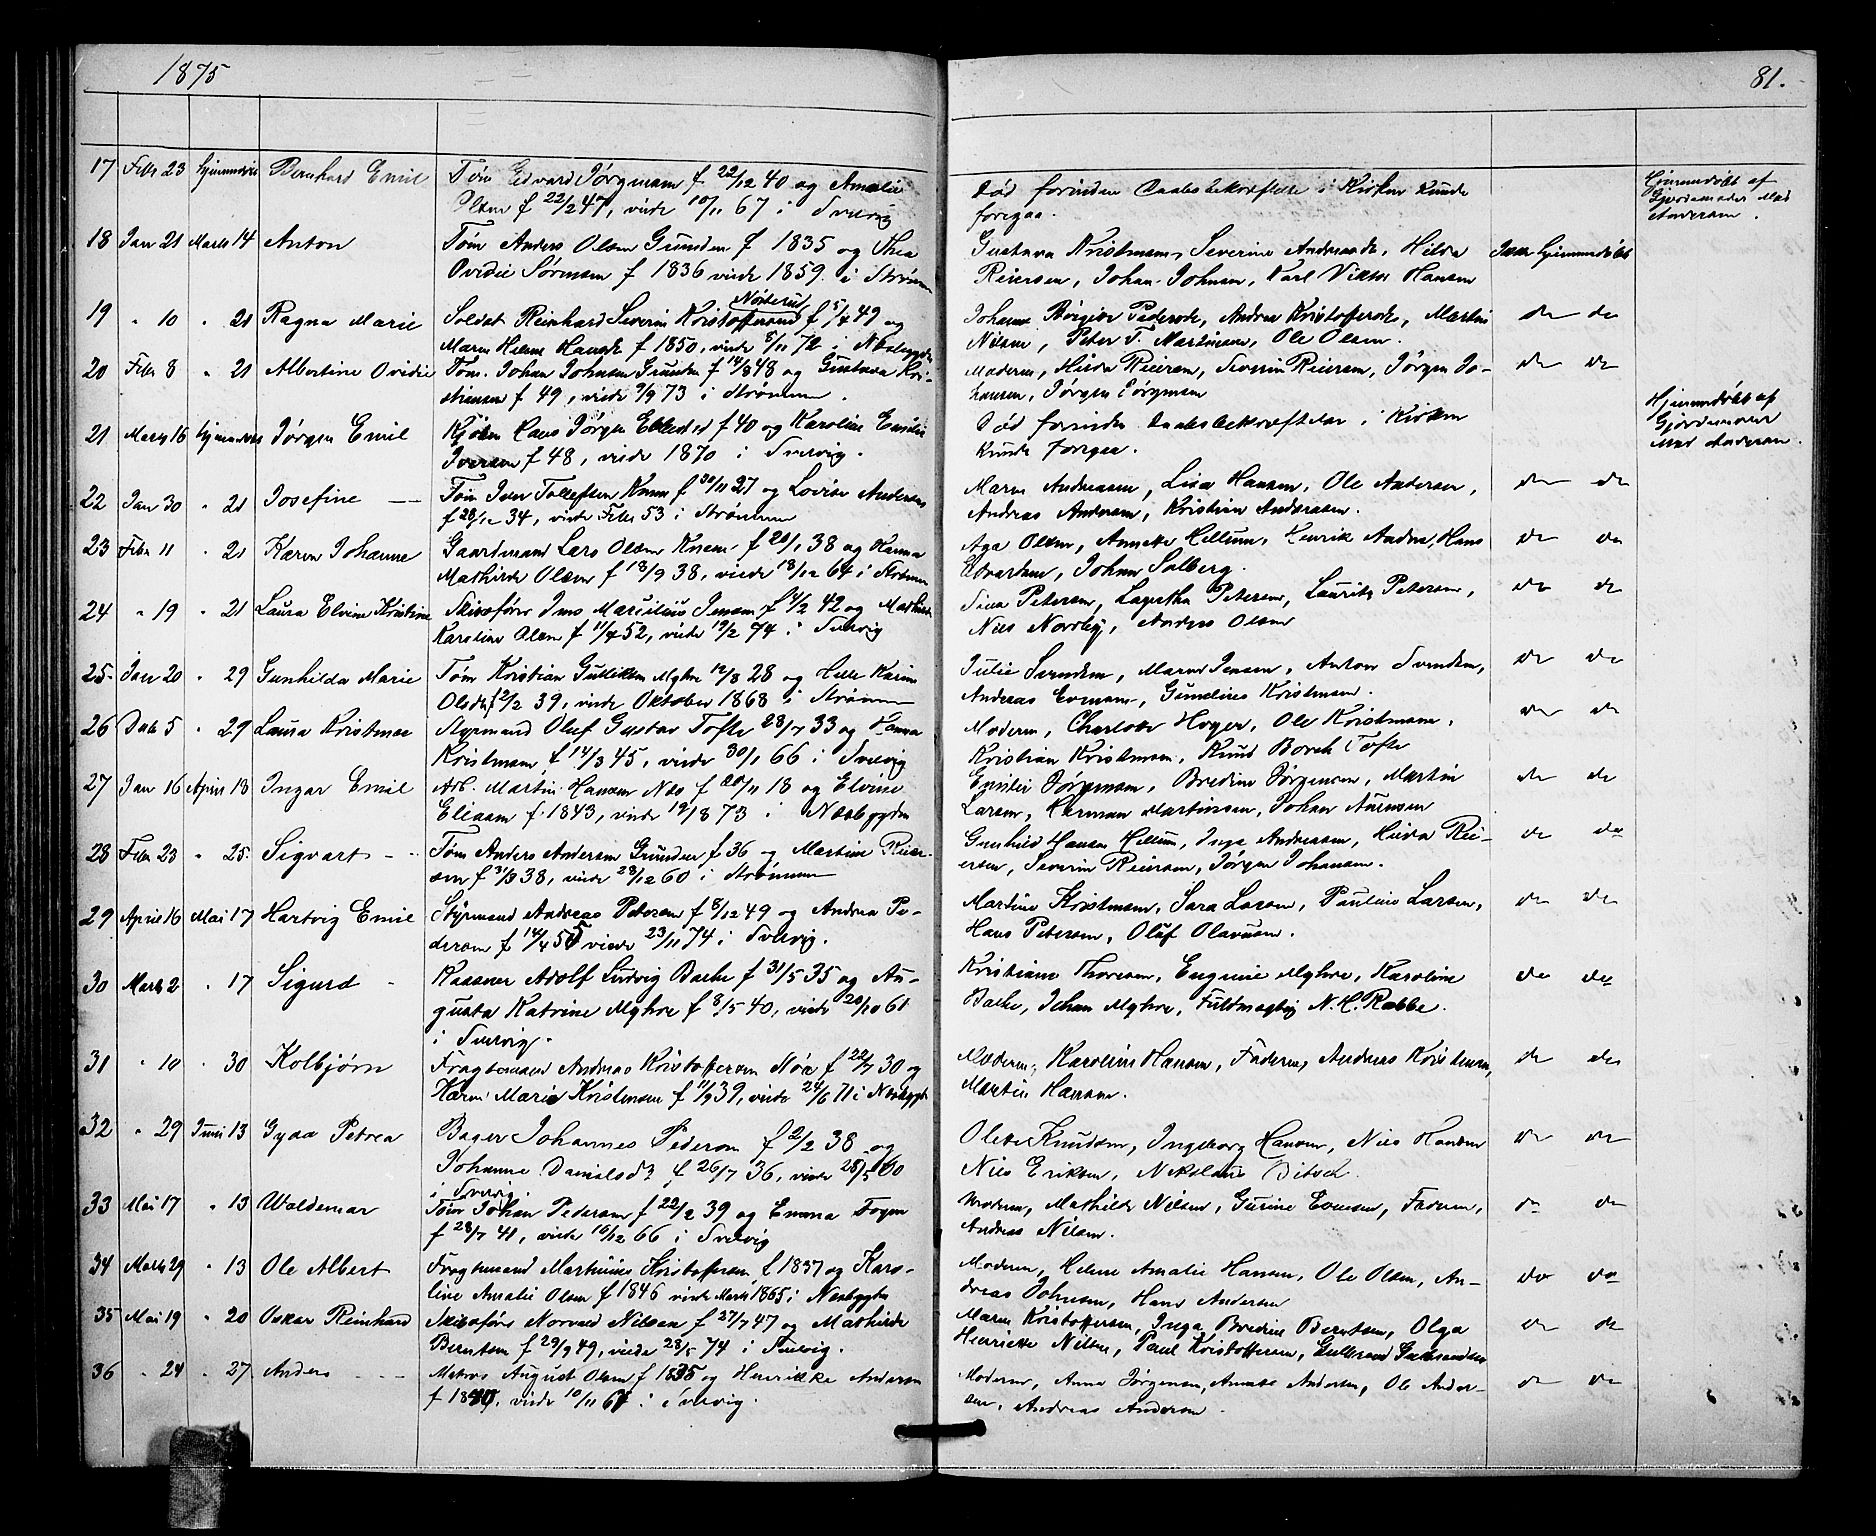 1875
81.
17 Febr 23 hjemmedøbt Bernhard Emil Tøm Edvard Jørgensen f 22/12 40 og Amalie
Olsen f 22/2 47, viede 10/11 67 i Svelvig
Død forinden Daabsbekræftelse i Kirken kunde
foregaa.
Hjemmedøbt af
Gjordemoder Mad
Andersen.
18 Jan 21 Marts 14 Anton Tøm Anders Olsen Grunden f 1835 og Thea
Ovidie Sørensen f 1836 viede 1859 i Strømm
Gustava Kristensen, Severine Andreasdr, Hilda
Reiersen, Johan Johnsen, Karl Viktor Hansen
Ikke hjemmedøbt
19 " 10 " 21 Ragna Marie Soldat Reinhard Severin Kristoffersen Nøsterud f 5/4 49 og
Maren Helene Hansdr f 1850, viede 8/11 72 i Nesbygden
Johanne Børgine Pedersdr, Andrea Kristoffersdr, Martin
Nilsen, Peter T. Martinsen, Ole Olsen.
do do
20 Febr 8 " 21 Albertine Ovidie Tøm. Johan Johnsen Grunden f 14/8 48 og Gustava Kri-
stensen f 49, viede 9/9 73 i Strømm.
Moderen, Hilda Reiersen, Severin Reiersen, Jørgen Jo-
hansen, Jørgen Jørgensen
do do
21 Marts 16 hjemmedøbt Jørgen Emil Hans Jørgen f 40 og Karoline Emilie
Iversen f 48, viede 1870 i Svelvig.
Død forinden Daabsbekræftelse i Kirken
kunde foregaa.
Hjemmedøbt af
Gjordemoder
Mad Andersen.
22 Jan 30 " 21 Josefine Tøm Iver Tollefsen Knem f 30/11 27 og Lovise Andersen
f 28/12 34, viede Febr 53 i Strømm
Maren Andreassen, Lisa Hansen, Ole Andersen,
Andreas Andersen, Kristian Andersen.
do do
23 Febr 11 " 21 Karen Johanne Gaardmand Lars Olsen Knem f 20/1 38 og Hanna
Mathilde Olsen f 18/9 38, viede 18/12 64 i Strømm
Aga Olsen, Annette Hellum, Henrik Andrea, Hans
Edvardsen, Johan Solberg.
do do
24 " 19 " 21 Laura Elvine Kristine Skibsfører Jens Marsilius Jensen f 4/2 42 og Mathilde
Karoline Olsen f 11/4 52, viede 19/2 74 i Svelvig
Petersen, Lagertha Petersen, Lauritz Petersen,
Nils Nordby, Anders Olsen
do do
25 Jan 20 " 29 Gunhilda Marie Tøm Kristian Gulliksen Myhre 12/8 28 og Helle Karine
Olsdr f 2/2 39, viede Oktober 1868 i Strømm
Julie Svendsen, Maren Jensen, Anton Svendsen,
Andreas Evensen, Kristensen.
do do
26 Dcbr 5 " 29 Laura Kristense Styrmand Oluf Gustav Tofte 28/7 33 og Hanna
Kristensen f 14/3 45, viede 30/1 66 i Svelvig
Moderen, Charlotte Høyer, Ole Kristensen,
Kristian Kristensen, Knud Borch Tofte
do do
27 Jan 16 April 18 Ingar Emil Arb. Martin Hansen Næs f 20/11 18 og Elvine
Eliasen f. 1843, viede 19/1 873 i Næsbygden
Emilie Jørgensen, Bredine Jørgensen, Martin
Larsen, Herman Martinsen, Johan Aurensen
do do
28 Febr 23 " 25. Sigvart Tøm Anders Andersen Grunden f 36 og Martine Reier-
sen f 31/3 38, viede 28/12 60 i Strømmen
Gunhild Hansen Hellum, Inga Andreassen, Hilda Rei-
ersen, Severin Reiersen, Jørgen Johansen.
do do
29 April 16 Mai 17 Hartvig Emil Styrmand Andreas Petersen f 8/12 49 og Andrea Pe-
dersen f 14/4 55 viede 23/11 74 i Svelvig.
Martine Kristensen, Sara Larsen, Pauline Larsen,
Hans Petersen, Oluf Olavesen.
do do
30 Marts 2 " 17 Sigurd Adolf Ludvig Bache f 31/5 35 og Au-
gusta Katrine Myhre f 8/5 40, viede 20/10 61
i Svelvig.
Kristiane Thoresen, Eugenie Myhre, Karoline
Bache, Johan Myhre, Fuldmægtig N. H. Rabbe.
do do
31 " 10 " 30 Kolbjørn Fragtemand Andreas Kristoffersen f 22/7 30 og
Karen Marie Kristensen f 11/9 39, viede 24/6 71 i Næsbygd
Moderen, Karoline Hansen, Faderen, Andreas Kristensen,
Martin Hansen.
do do
32 " 29 Juni 13 Gyda Petrea Bager Johannes Pedersen f 2/2 38 og
Johanne Danielsdr f 26/7 36, viede 28/5 60
i Svelvig.
Olette Knudsen, Ingeborg Hansen, Nils Hansen
Nils Eriksen, Ditsel.
do do
33 Mai 17 " 13 Waldemar Tøm Johan Pedersen f 22/2 39 og Emma Fogen
f 28/7 41, viede 16/12 66 i Svelvig
Moderen, Mathilde Nilsen, Gurine Evensen, Faderen,
Andreas Nilsen.
do do
34 Marts 29 " 13 Ole Albert Fragtemand Marthinius Kristoffersen f 1837 og Karo-
line Amalie Olsen f 1846 viede Marts 1865 i Næsbygden
Moderen, Helene Amalie Hansen, Ole Olsen, An-
dreas Johnsen, Hans Andersen
do do
35 Mai 19 " 20 Oskar Reinhard Skibsfører Norvald Nilsen f 27/7 47 og Mathilde
Berntsen f 29/9 49, viede 28/5 74 i Svelvig.
Maren Kristoffersen, Inga Bredine Berntsen, Olga
Henriette Nilsen, Paul Kristoffersen,
do do
36 " 24 " 27 Anders Matros August Olsen f 1835 og Henrikke Andersen
f 1840, viede 10/11 61 i Svelvig.
Moderen, Anne Jørgensen, Annette Andersen, Ole Ander-
sen, Andreas Andersen.
do do